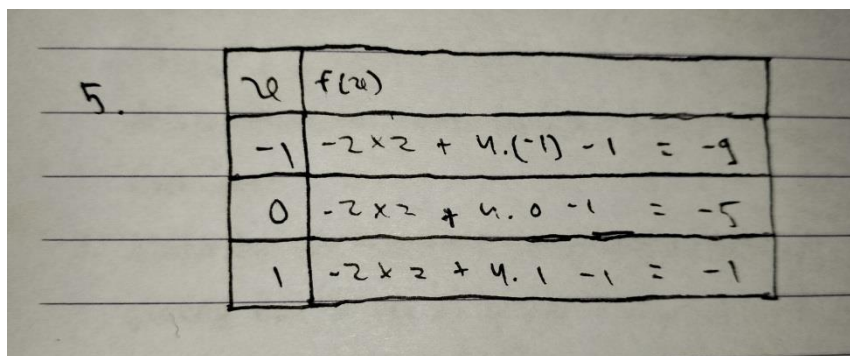 5.
x f(x)
-1 -2×2 + 4.(-1) -1 = -9
0 -2×2 + 4.0 -1 = -5
1 -2×2 + 4.1 -1 = -1